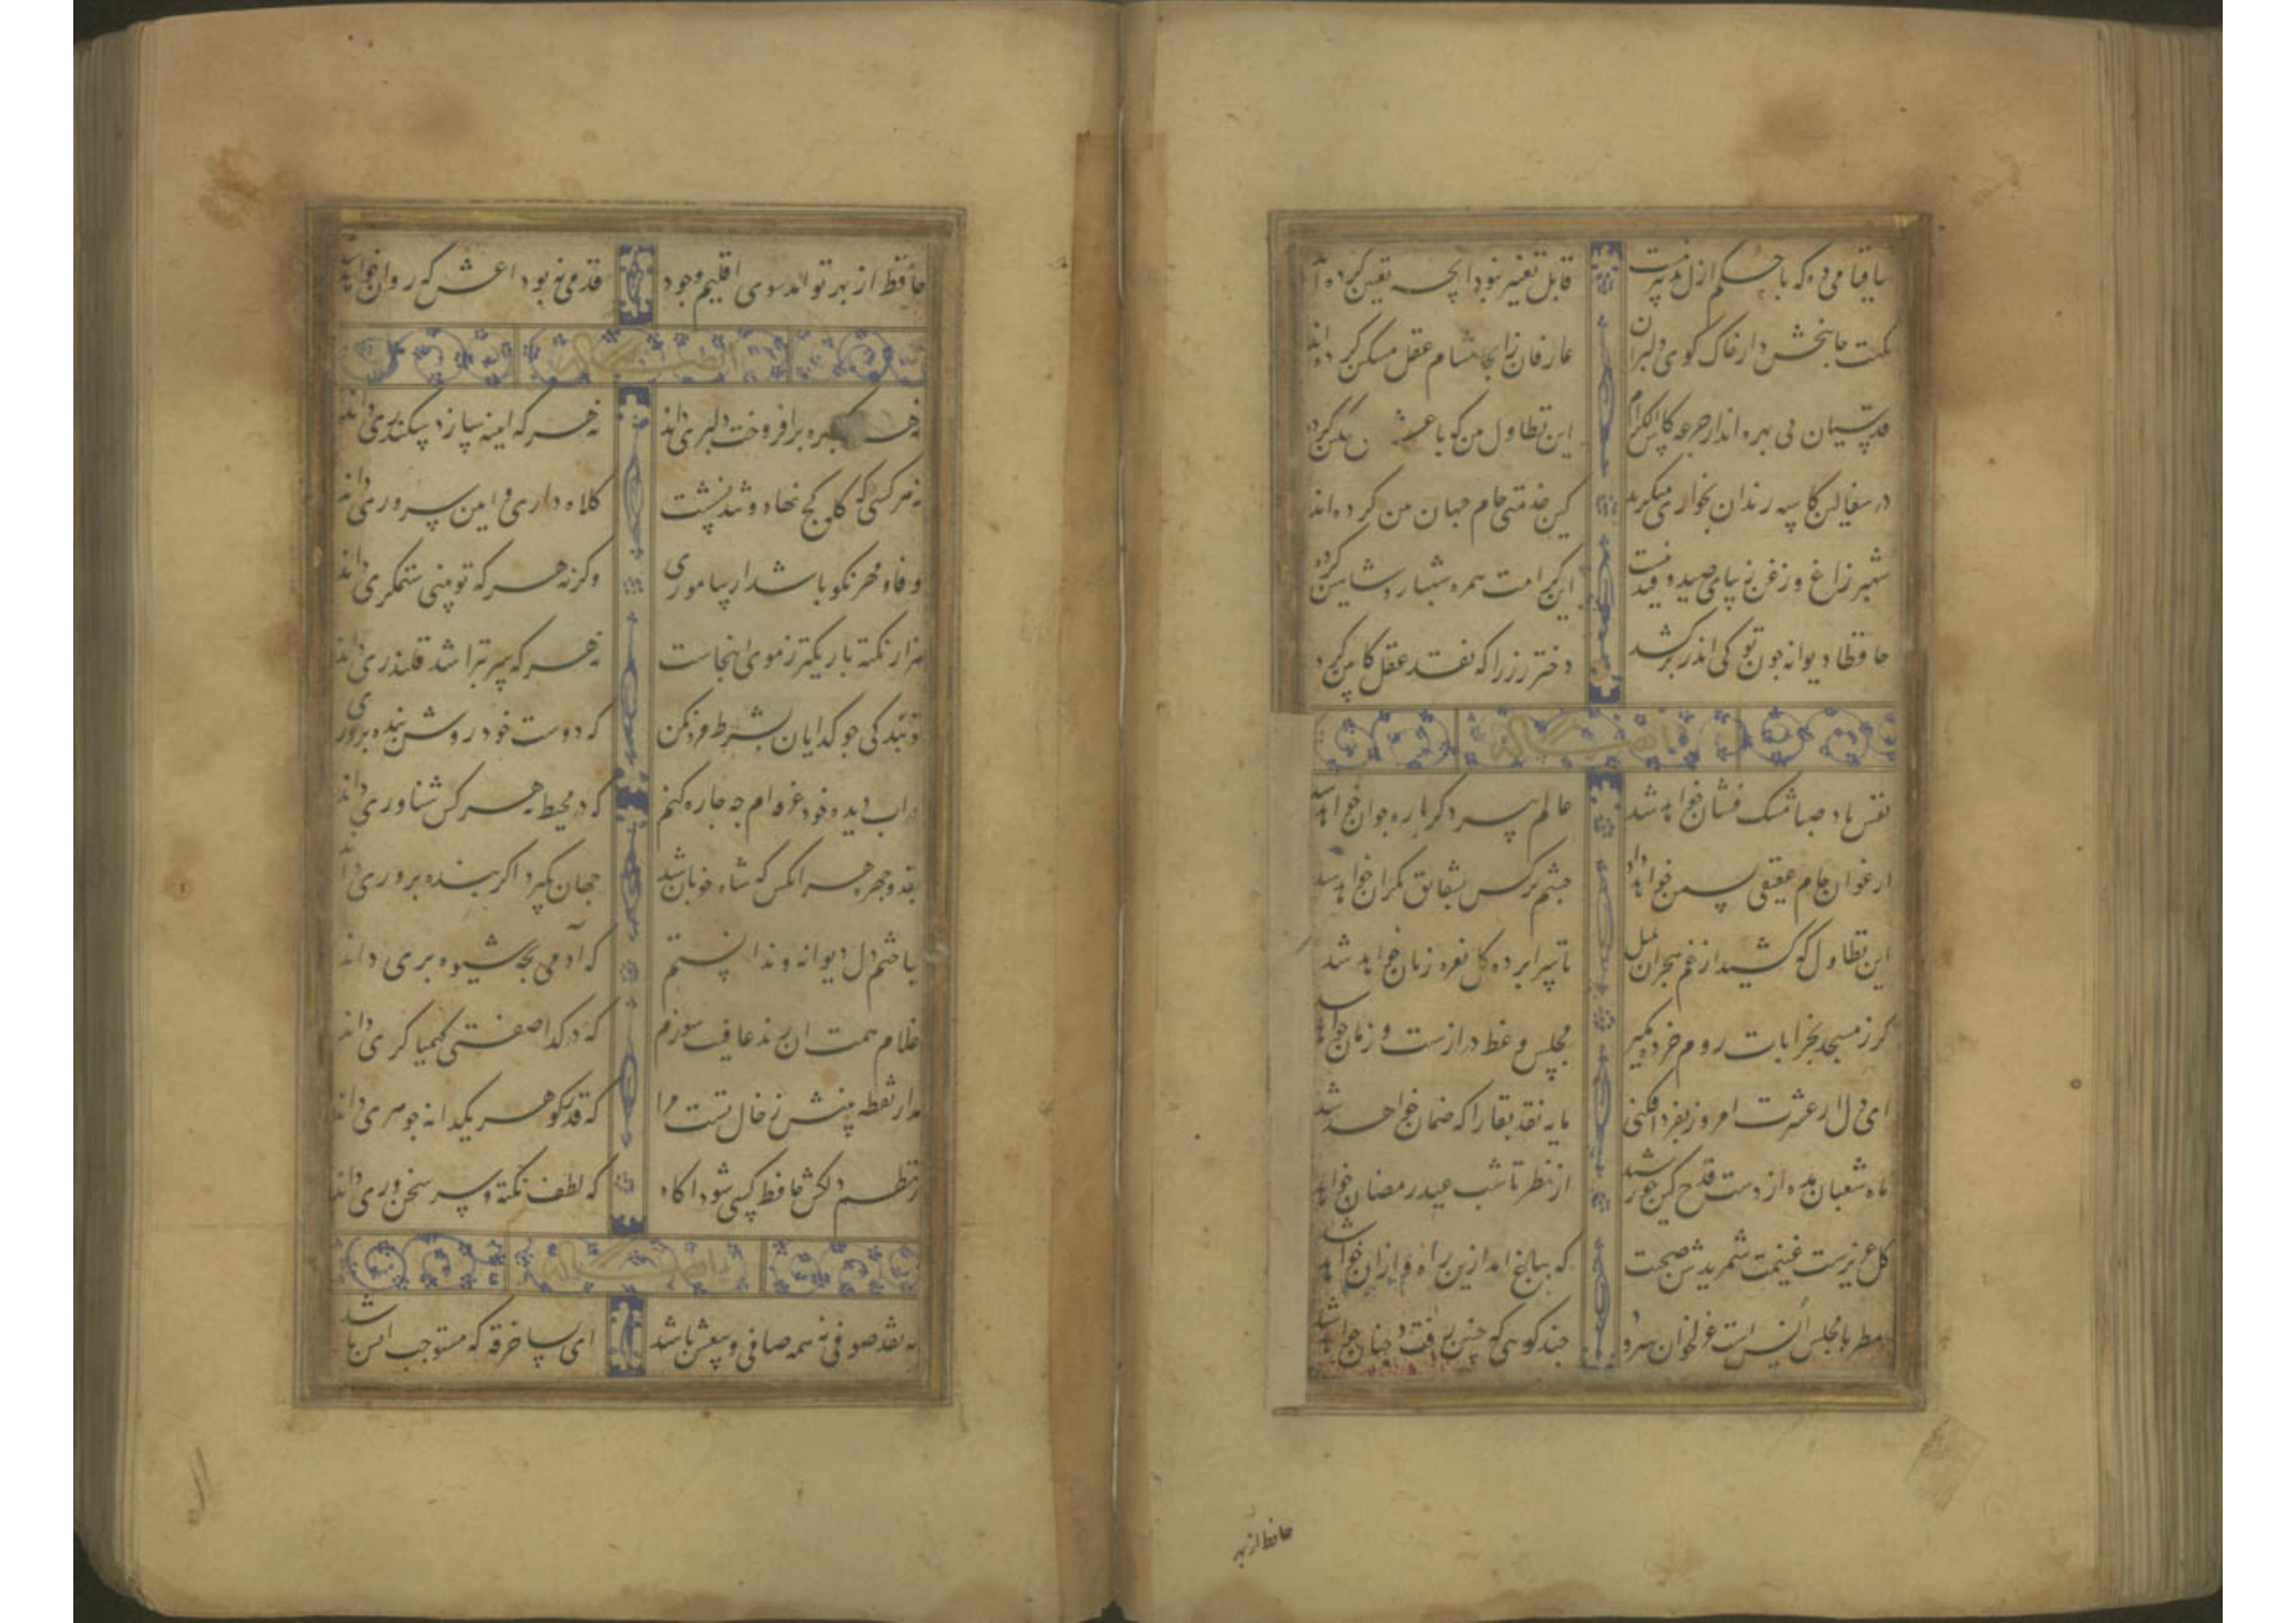 ساقیا می ده که با حکم ازل تدبیر نیست قابل تغییر نبود انچه تعیین کرده اند
نکهت جانبخش دارد خاک کوی دلبران عارفان زانجا مشام عقل مشکین کرده اند
قدسیان بی بهره اند از جرعه کاس الکرام این تطاول من که با عشاق مسکین کرده
در سفالین کاسه رندان بخواری منگرید کین خدمتی جام جهان من کرده اند
شهپر زاغ و زغن زیبای صید و قید نیست این کرامت همره شهباز و شاهین کرده
حافظا دیوانه چون تو کی اندر بر کشد دختر رز را که نقد عقل کابین کرد
نفس باد صبا مشک فشان خواهد شد عالم پیر دگر باره جوان خواهد شد
ارغوان جام عقیقی بسمن خواهد داد چشم نرکس بشقایق نکران خواهد شد
این تطاول که کشید از غم هجران بلبل تا سراپرده کل نعره زنان خواهد شد
کر ز مسجد بخرابات روم خرده مگیر مجلس وعظ درازست و زمان خواهد شد
ای دل ار عشرت امروز بفردا فکنی مایه نقد بقا را که ضمان خواهد شد
ماه شعبان مده از دست قدح کین خورشید از نظر تا شب عید رمضان خواهد شد
کل عزیزست غنیمت شمریدش صحبت که بباغ امد ازین راه و ازان خواهد شد
مطربا مجلس انس است غزل خوان و سرود چند کویی که چنین رفت و چنان خواهد شد
حافظ از بهر
حافظ از بهر تو امد سوی اقلیم وجود قدمی نه بوداعش که روان خواهد شد
نه هر که چهره برافروخت دلبری داند نه هر که اینه سازد سکندری داند
نه هر کسی که کله کج نهاد و تند نشست کلاه داری و ایین سروری داند
وفا و مهر نکو باشد ار بیاموزی وکرنه هر که تو بینی ستمکری داند
هزار نکته باریکتر ز موی اینجاست نه هر که سر بتراشد قلندری داند
تو بندکی چو کدایان بشرط مزد مکن که دوست خود روش بنده پروری داند
در اب دیده خود غرقه ام چه چاره کنم که در محیط نه هر کس شناوری داند
بقد و چهره هر انکس که شاه خوبان شد جهان بگیرد اکر بنده پروری داند
بباختم دل دیوانه و ندانستم که آدمی بچه شیوه پری داند
غلام همت ان رند عافیت سوزم که در کدا صفتی کیمیا کری داند
مدار نقطه بینش ز خال تست مرا که قدر کوهر یکدانه جوهری داند
ز نظم دلکش حافظ کسی شود اکاه که لطف نکته و سر سخن وری داند
نه نقد صوفی نه همه صافی و بیغش باشد ای بسا خرقه که مستوجب اتش باشد